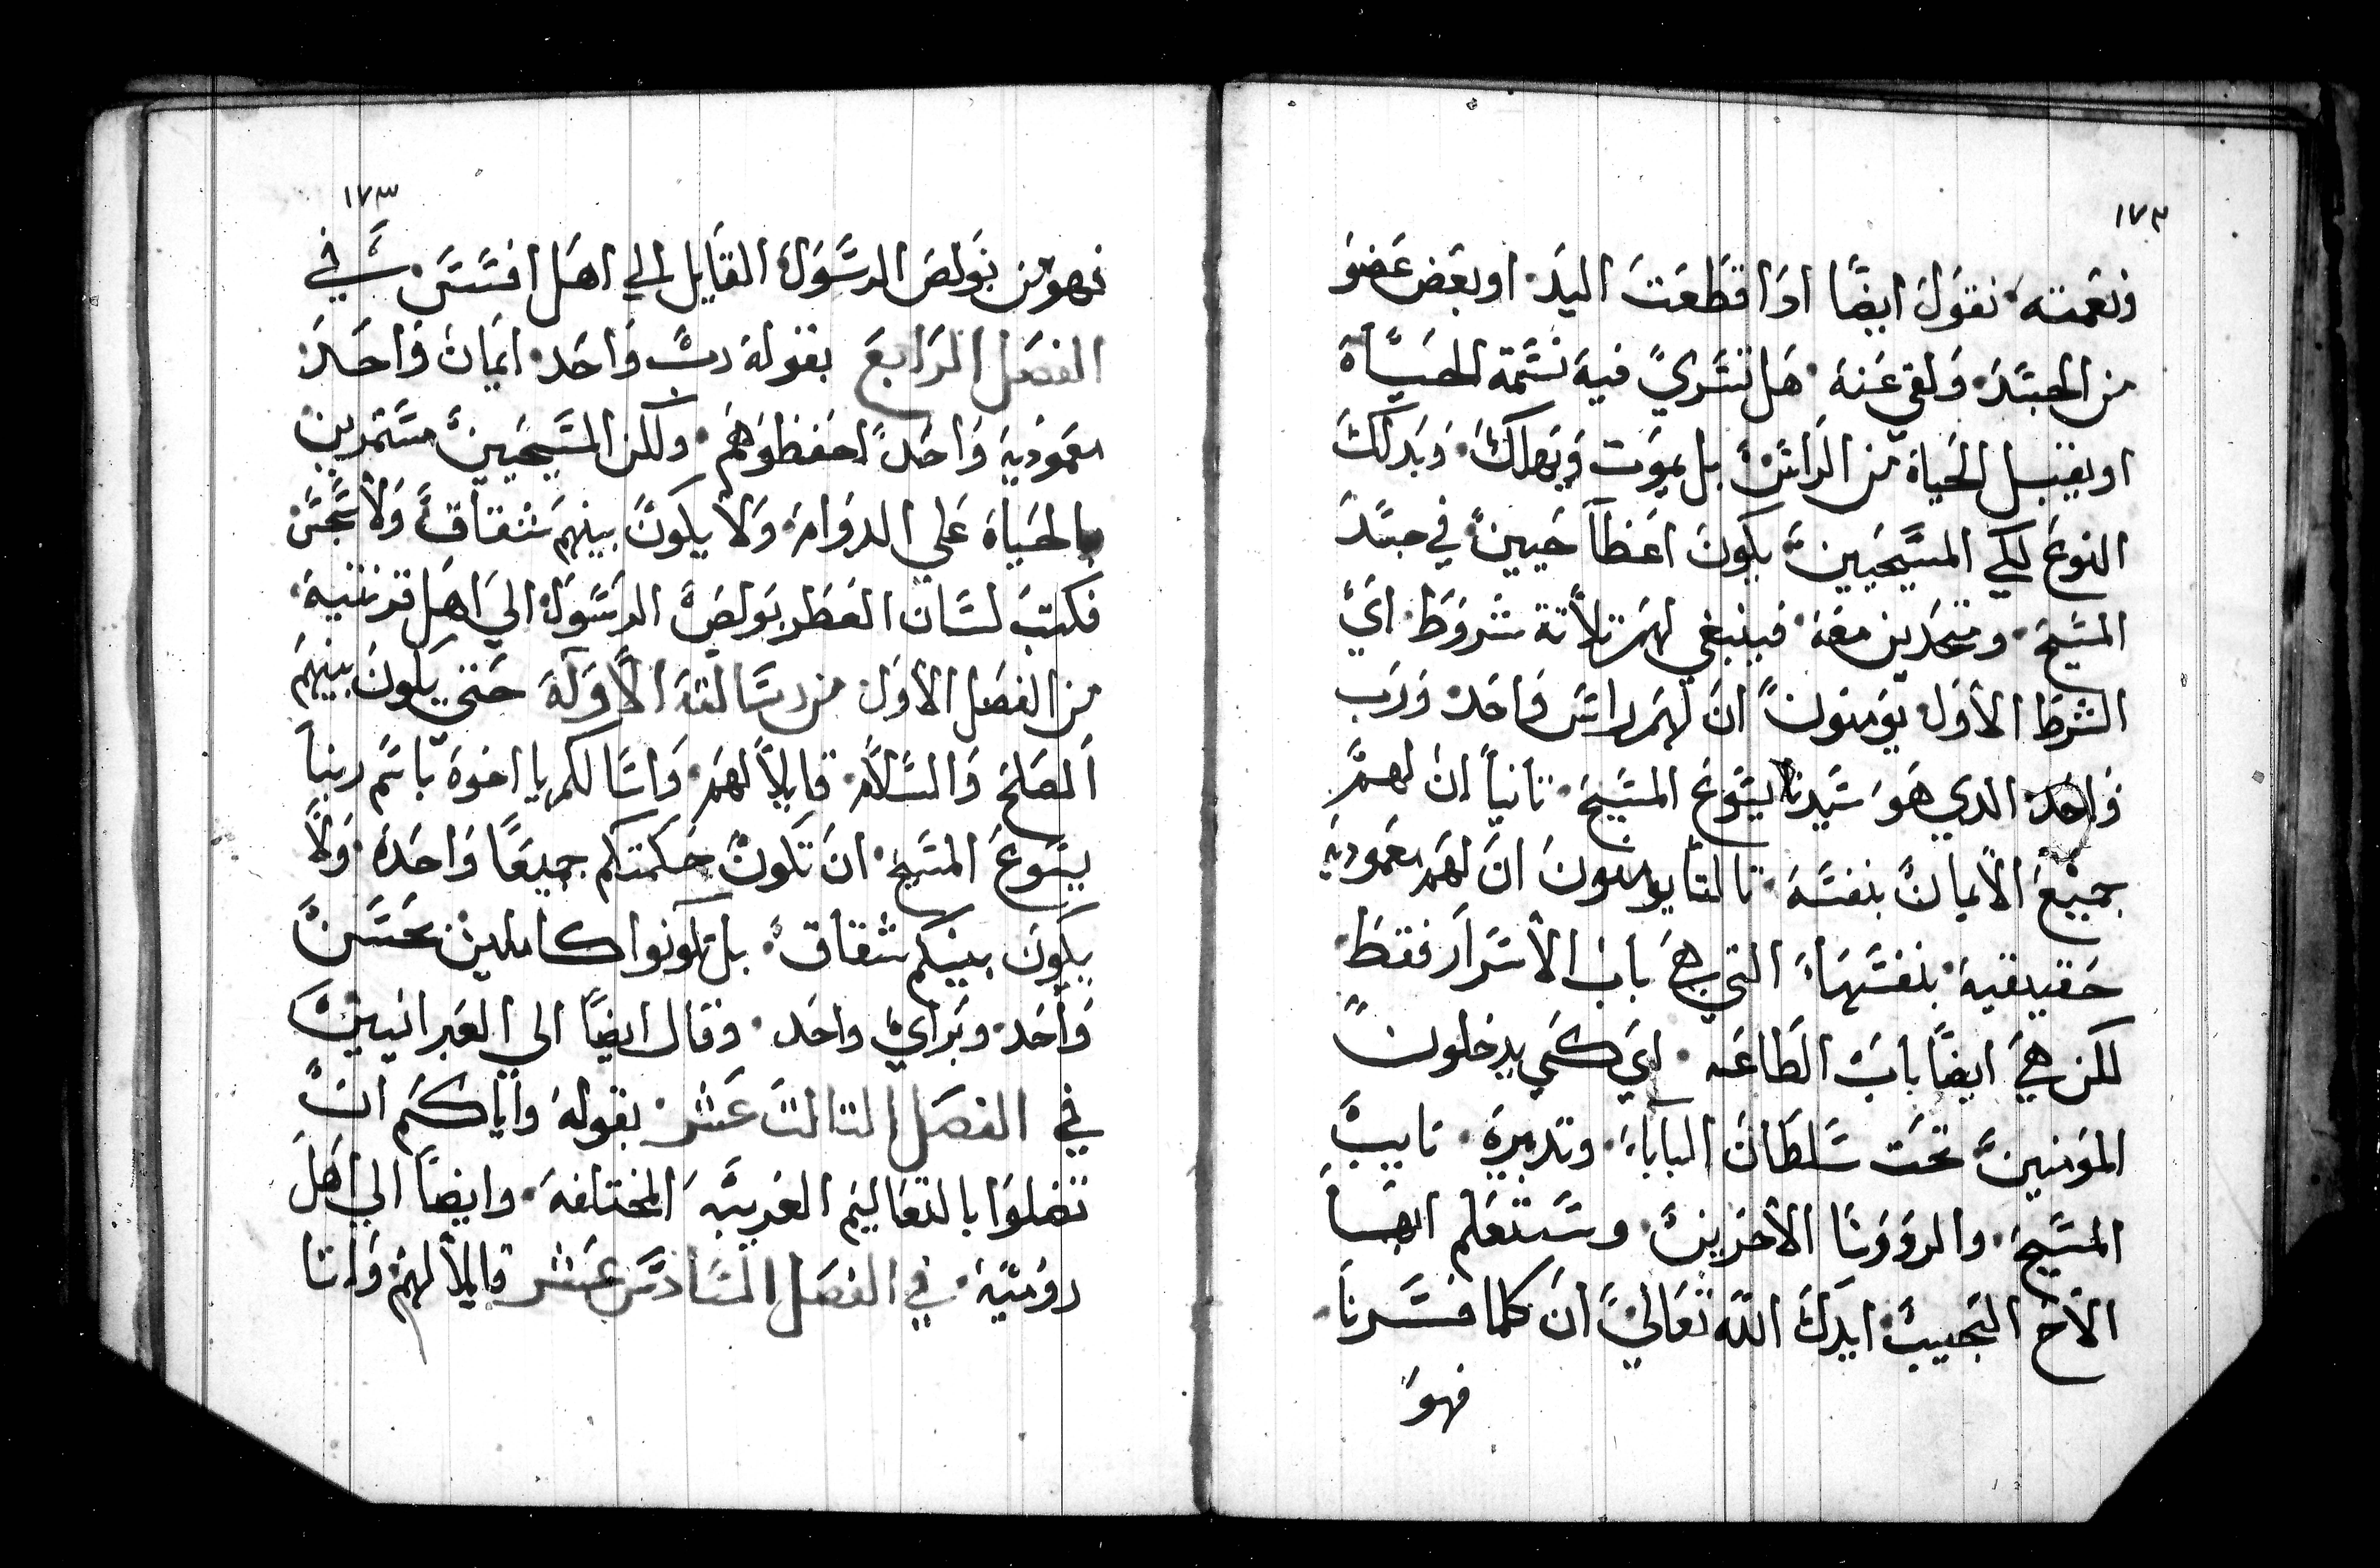 ١٧٢
ونعمته نقول ايضًا ادا قطعت اليد او بعض عضو
من الجسد ولقي عنه هل تسري فيه نسمة الحياة
او يقبل الحياة من الراس بل يموت ويهلك وبدلك
النوع لكي المسيحيين يكون اعظا حيين في جسد
المسيح ومتحدين معه فينبغي لهم تلاتة شروط اي
الشرط الاول يومنون ان لهم راس واحد ورب
واحد الدي هو سيدنا يسوع المسيح تانياً ان لهم
جميع الايمان بنفسه تالتا يومنون ان لهم معمودية
حقيقية بنفسها التي هي باب الأسرار فقط
لكن هي ايضًا باب الطاعه اي كمي يدخلون
المومنين تحت سلطان البابا وتدبيره نايب
المسيح والرووسا الاخرين وستعلم ايها
الأخ الحبيب ايدك الله تعالي ان كلما فسرنا
فهو
١٧٣
فهو من بولص الرسول القايل الي اهل افسس في
الفصل الرابع بقوله رب واحد ايمان واحد
معمودية واحد احفظوهم ولكن المسيحيين مستمرين
بالحياة علي الدوام ولا يكون بينهم شقاق ولا تجس
فكتب لسان العطر بولص الرسول الي اهل قرنتية
من الفصل الأول من رسالته الاوله حتي يكون بينهم
الصلح والسلام قايلاً لهم واسالكم يا اخوة باسم ربنا
يسوع المسيح ان تكون حكمتكم جميعًا واحدة ولا
يكون بينكم شقاق بل تكونوا كاملين بحسن
واحد وبراي واحد وقال ايضًا الي العبرانيين
في الفصل التالت عشر بقوله واياكم ان
تضلوا بالتعاليم الغريبه المختلفه وايضًا الي اهل
روميه في الفصل السادس عشر قايلاً لهم وانا